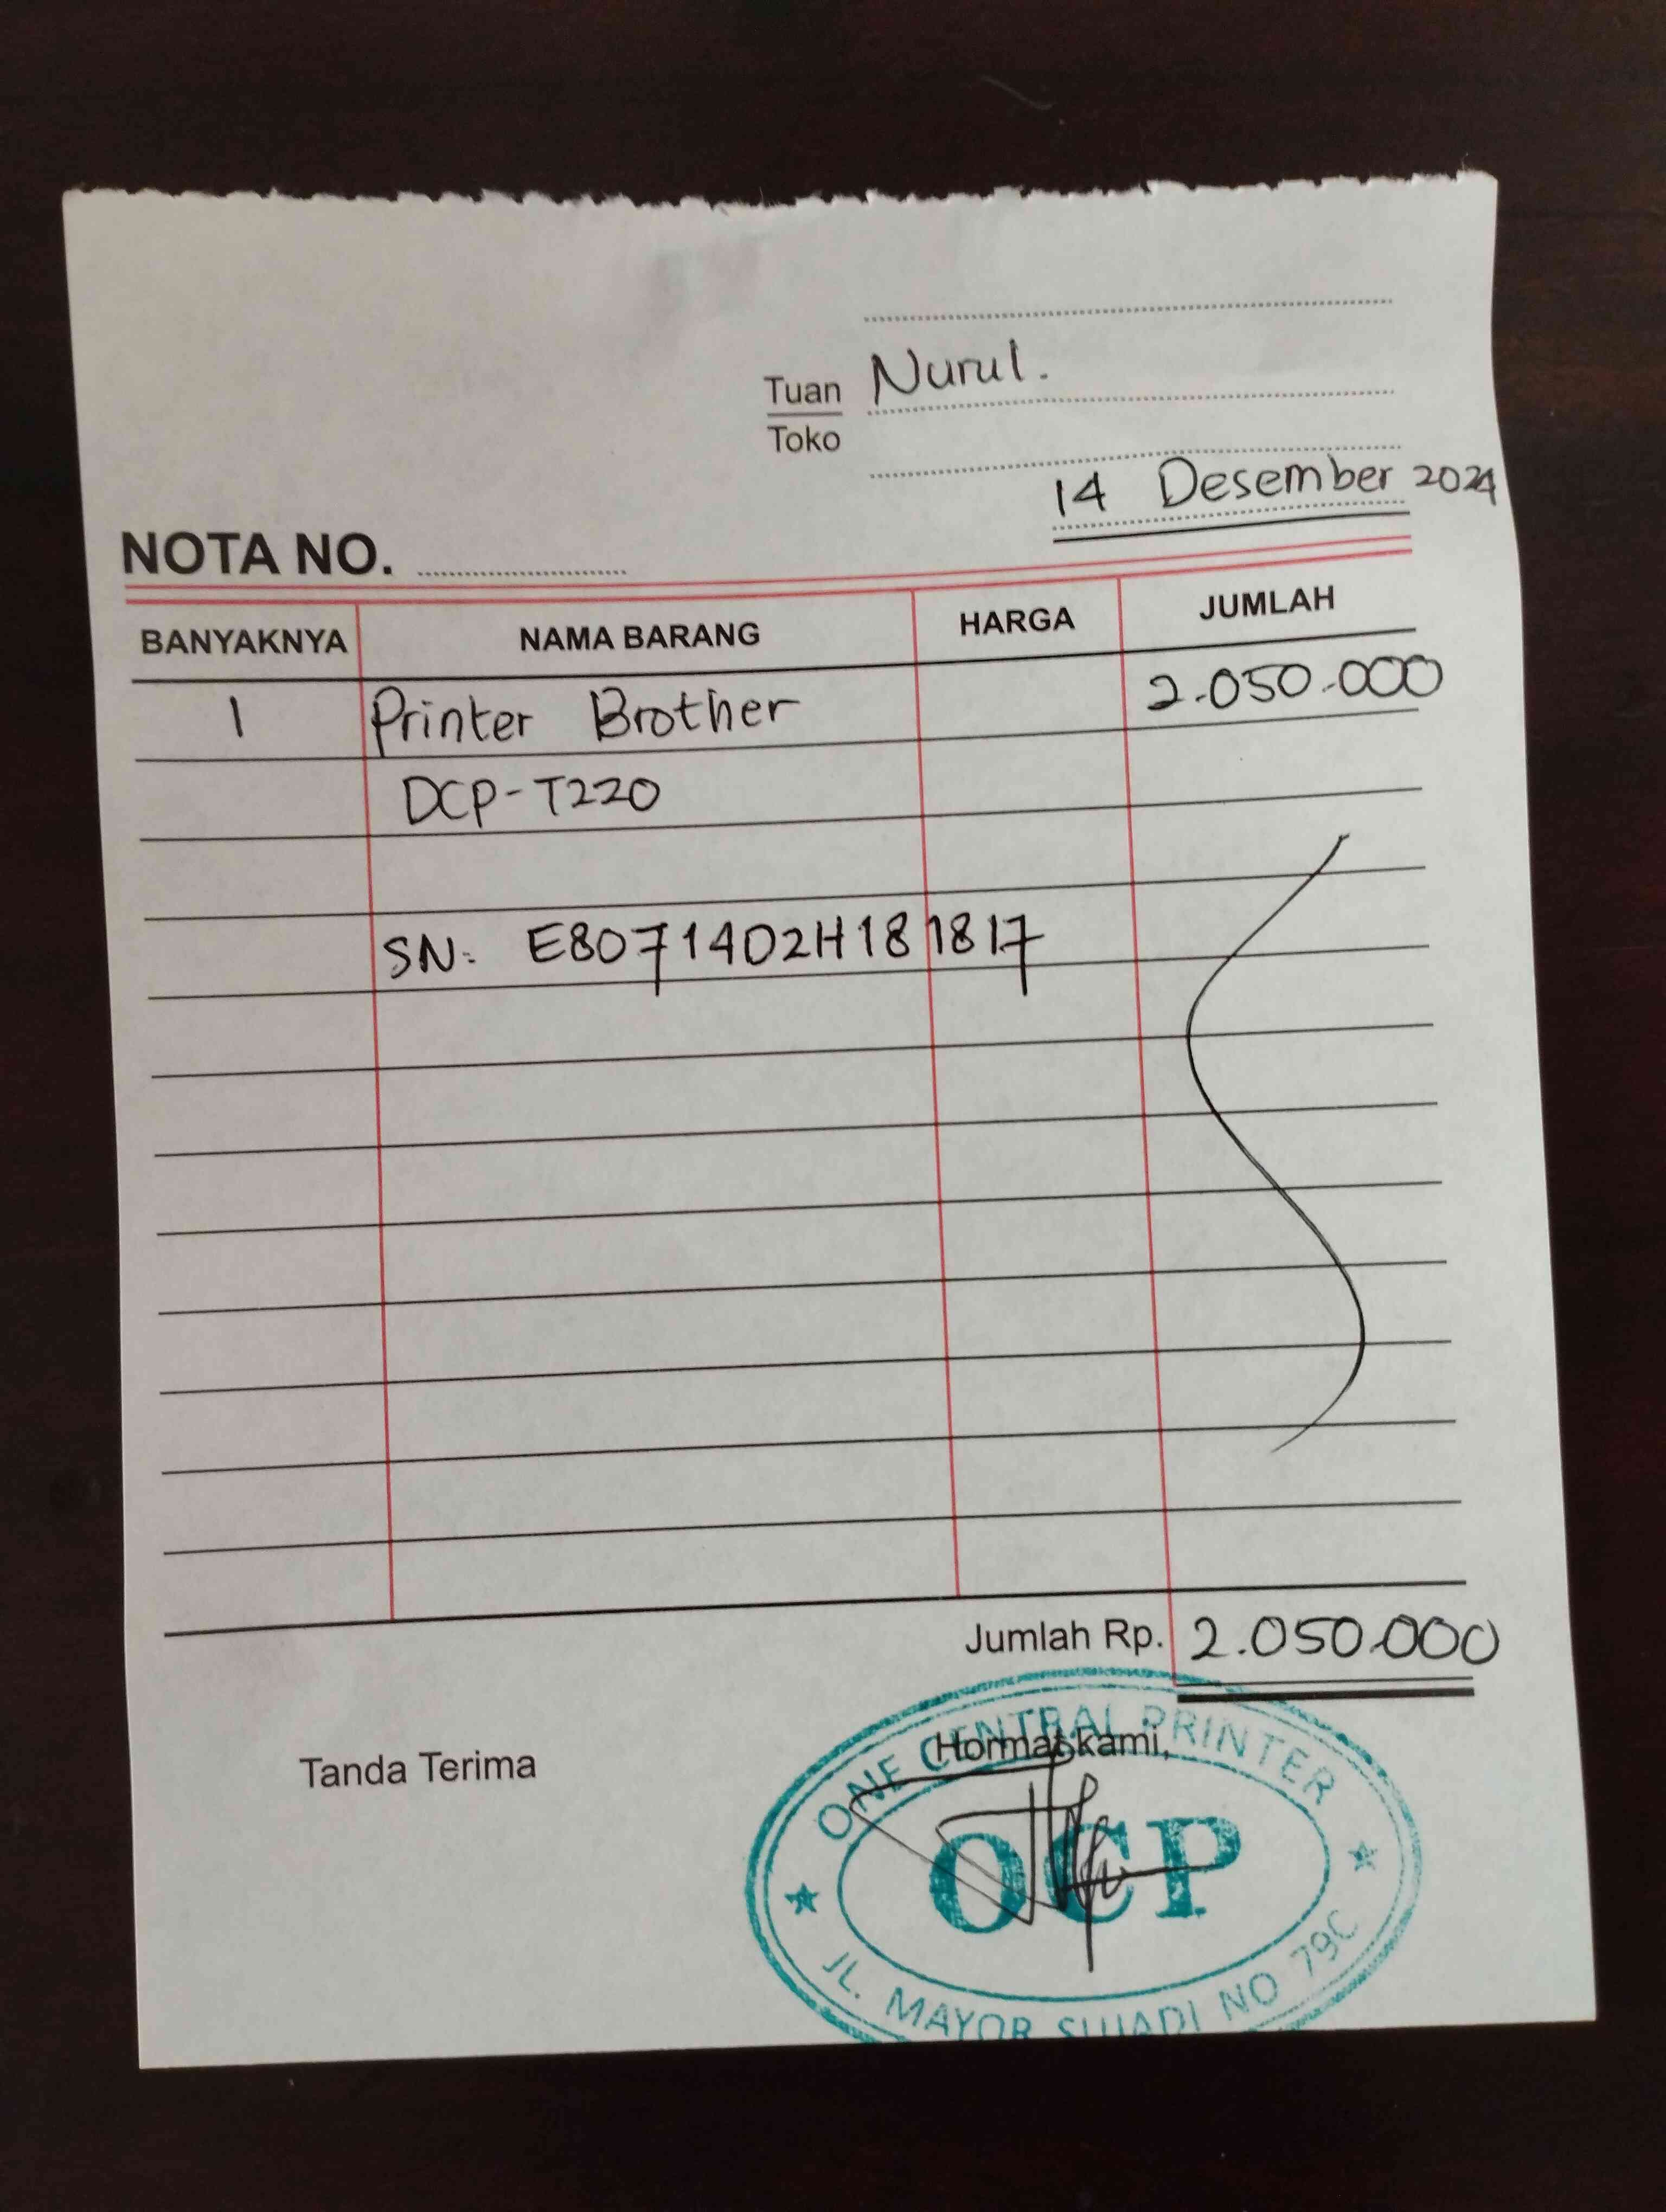 Tuan Nurul.
Toko
14 Desember 2024
NOTA NO. ....................
BANYAKNYA NAMA BARANG HARGA JUMLAH
1 Printer Brother 2.050.000
DCP-T220
SN: E8071402H181817
Jumlah Rp. 2.050.000
Tanda Terima Hormat kami,
ONE CENTRAL PRINTER
OCP
JL. MAYOR SUJADI NO 79C